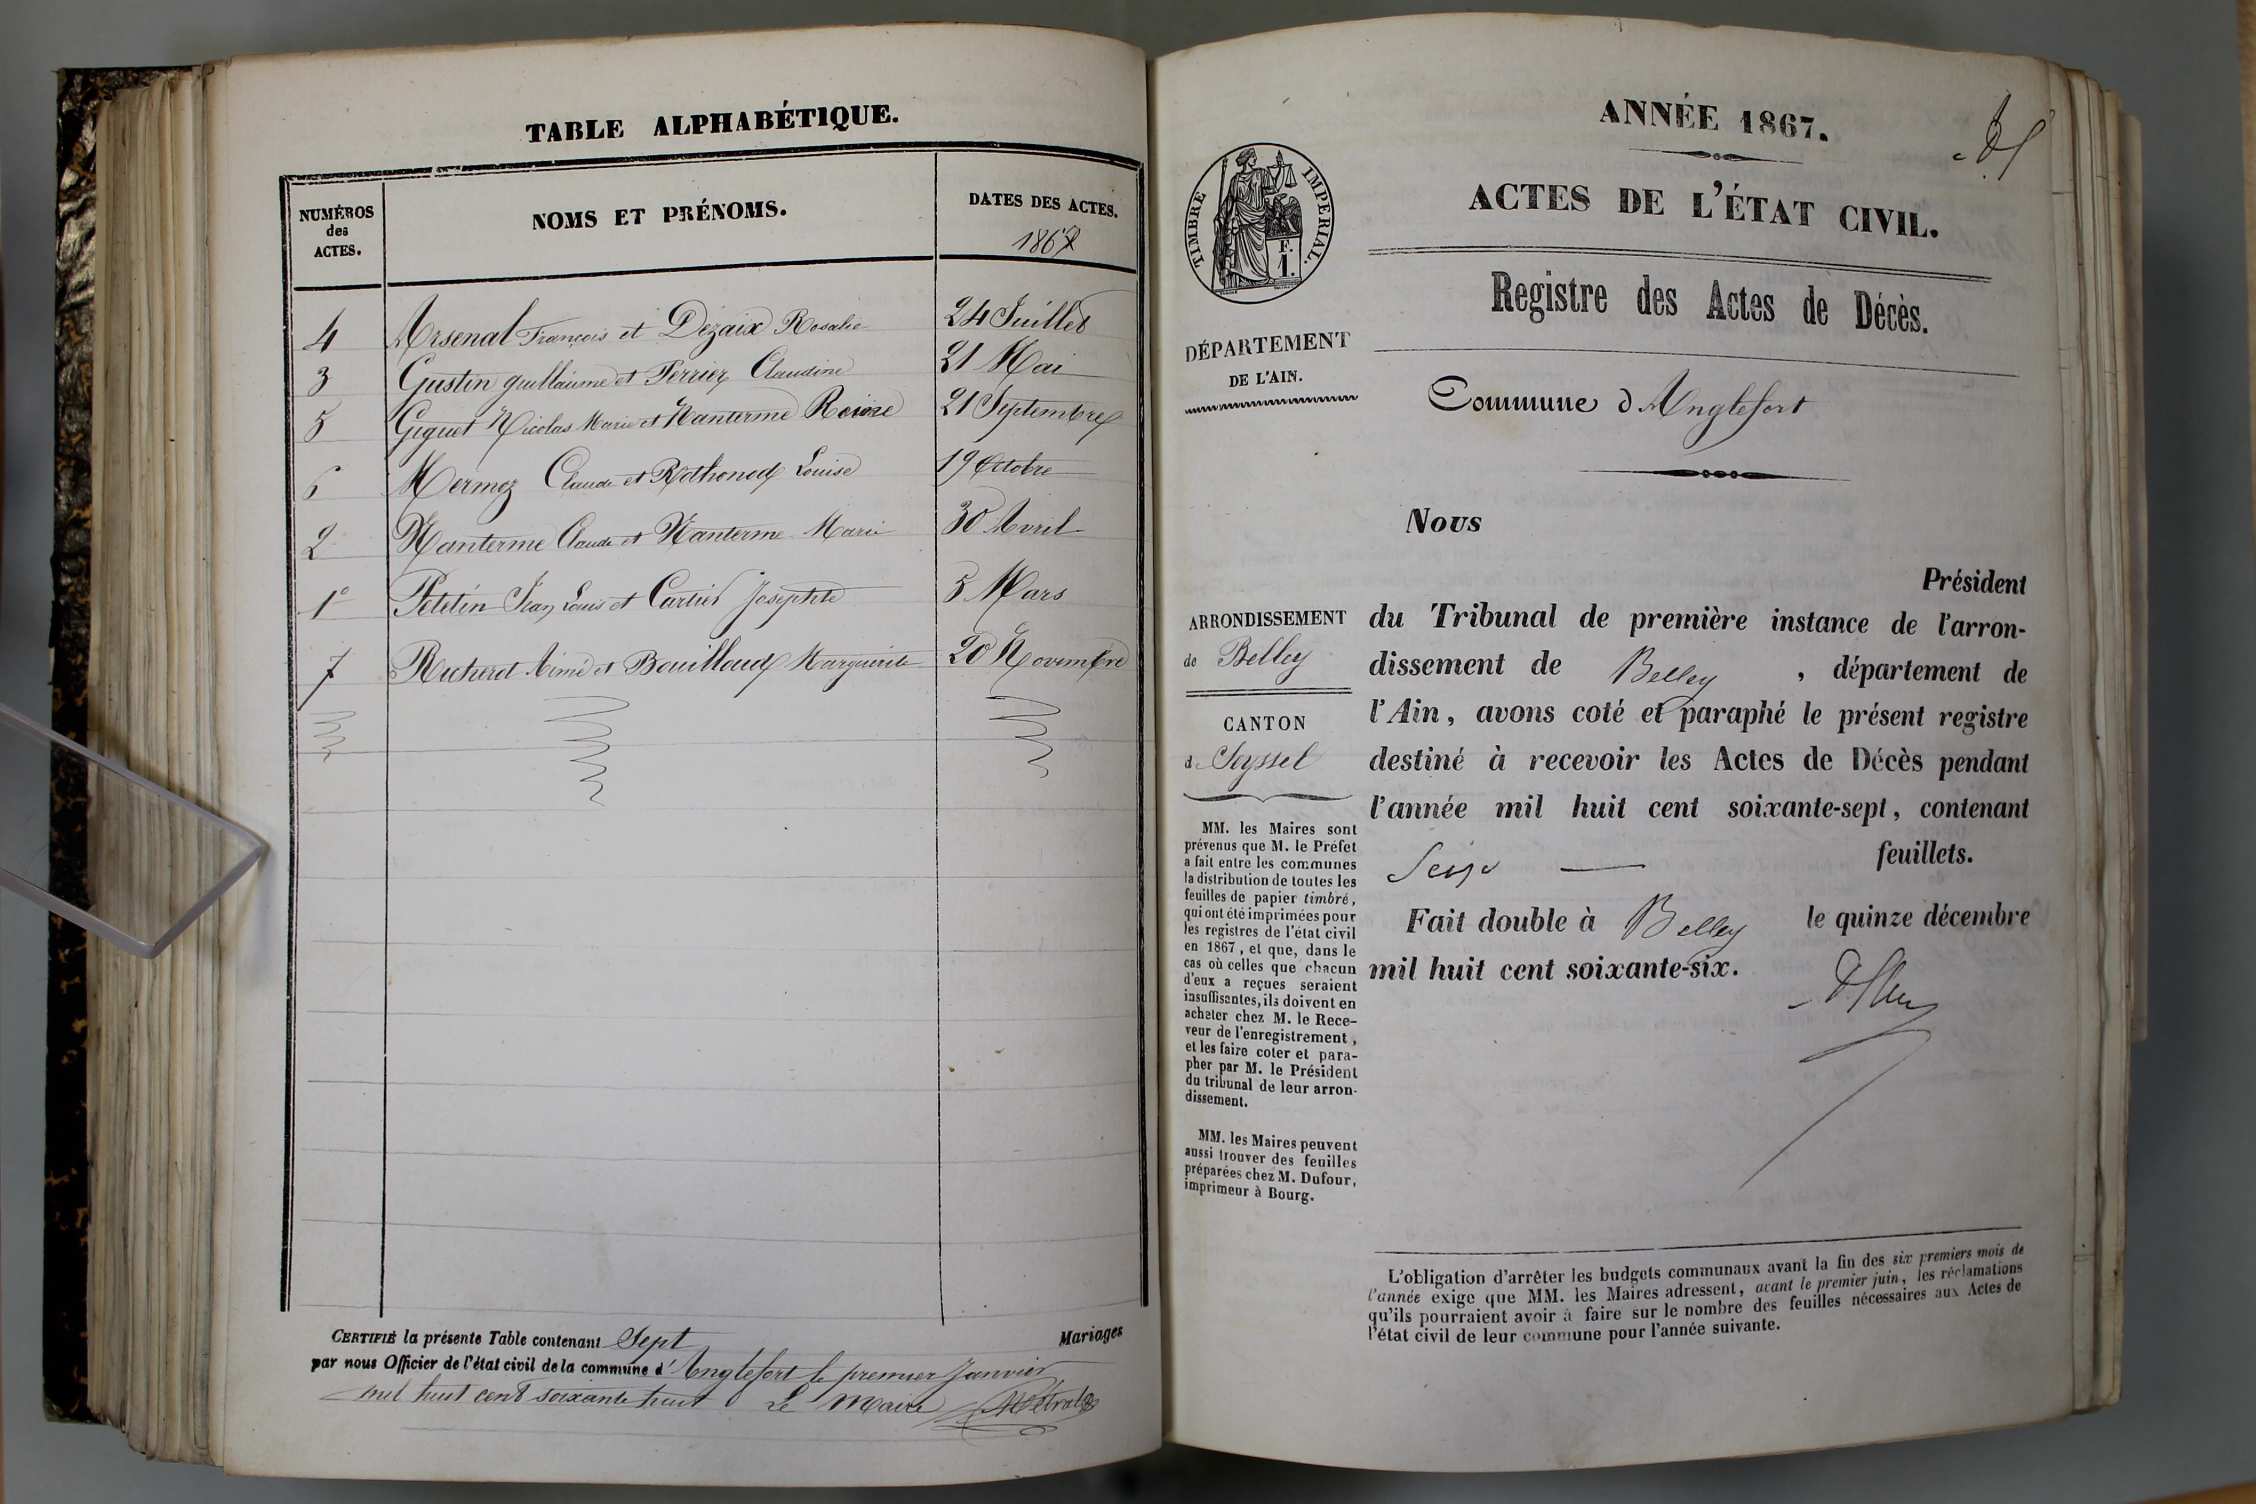 TABLE ALPHABÉTIQUE.
NUMÉROS des ACTES.
NOMS ET PRÉNOMS.
DATES DES ACTES.
1867
4 Arsenal François et Dezaix Rosalie 24 Juillet
3 Gustin guillaume et Perrier Claudine 21 Mai
5 Giguet Nicolas Marie et Nanterme 21 Septembre
6 Mermoz Claude et Rothonod Louise 19 Octobre
2 Nanterme Claude et Nanterme Marie 30 Avril
1º Petetin Jean Louis et Cartier Josephte 5 Mars
7 Richerot Aimé et Bouilloud Marguerite 20 Novembre
CERTIFIÉ la présente Table contenant Sept Mariages
par nous Officier de l'état civil de la commune d'Anglefort le premier Janvier
mil huit cent soixante huit Le Maire
ANNÉE 1867.
ACTES DE L'ÉTAT CIVIL.
Registre des Actes de Décès.
TIMBRE IMPERIAL.
F.
1.
DÉPARTEMENT
DE L'AIN.
Commune d'Anglefort
ARRONDISSEMENT
de Belley
CANTON
d. Seyssel
MM. les Maires sont
prévenus que M. le Préfet
a fait entre les communes
la distribution de toutes les
feuilles de papier timbré,
qui ont été imprimées pour
les registres de l'état civil
en 1867, et que, dans le
cas où celles que chacun
d'eux a reçues seraient
insuffisantes, ils doivent en
acheter chez M. le Rece-
veur de l'enregistrement,
et les faire coter et para-
pher par M. le Président
du tribunal de leur arron-
dissement.
MM. les Maires peuvent
aussi trouver des feuilles
préparées chez M. Dufour,
imprimeur à Bourg.
Nous
Président
du Tribunal de première instance de l'arron-
dissement de Belley, département de
l'Ain, avons coté et paraphé le présent registre
destiné à recevoir les Actes de Décès pendant
l'année mil huit cent soixante-sept, contenant
Seize feuillets.
Fait double à Belley le quinze décembre
mil huit cent soixante-six.
L'obligation d'arrêter les budgets communaux avant la fin des six premiers mois de
l'année exige que MM. les Maires adressent, avant le premier juin, les réclamations
qu'ils pourraient avoir à faire sur le nombre des feuilles nécessaires aux Actes de
l'état civil de leur commune pour l'année suivante.